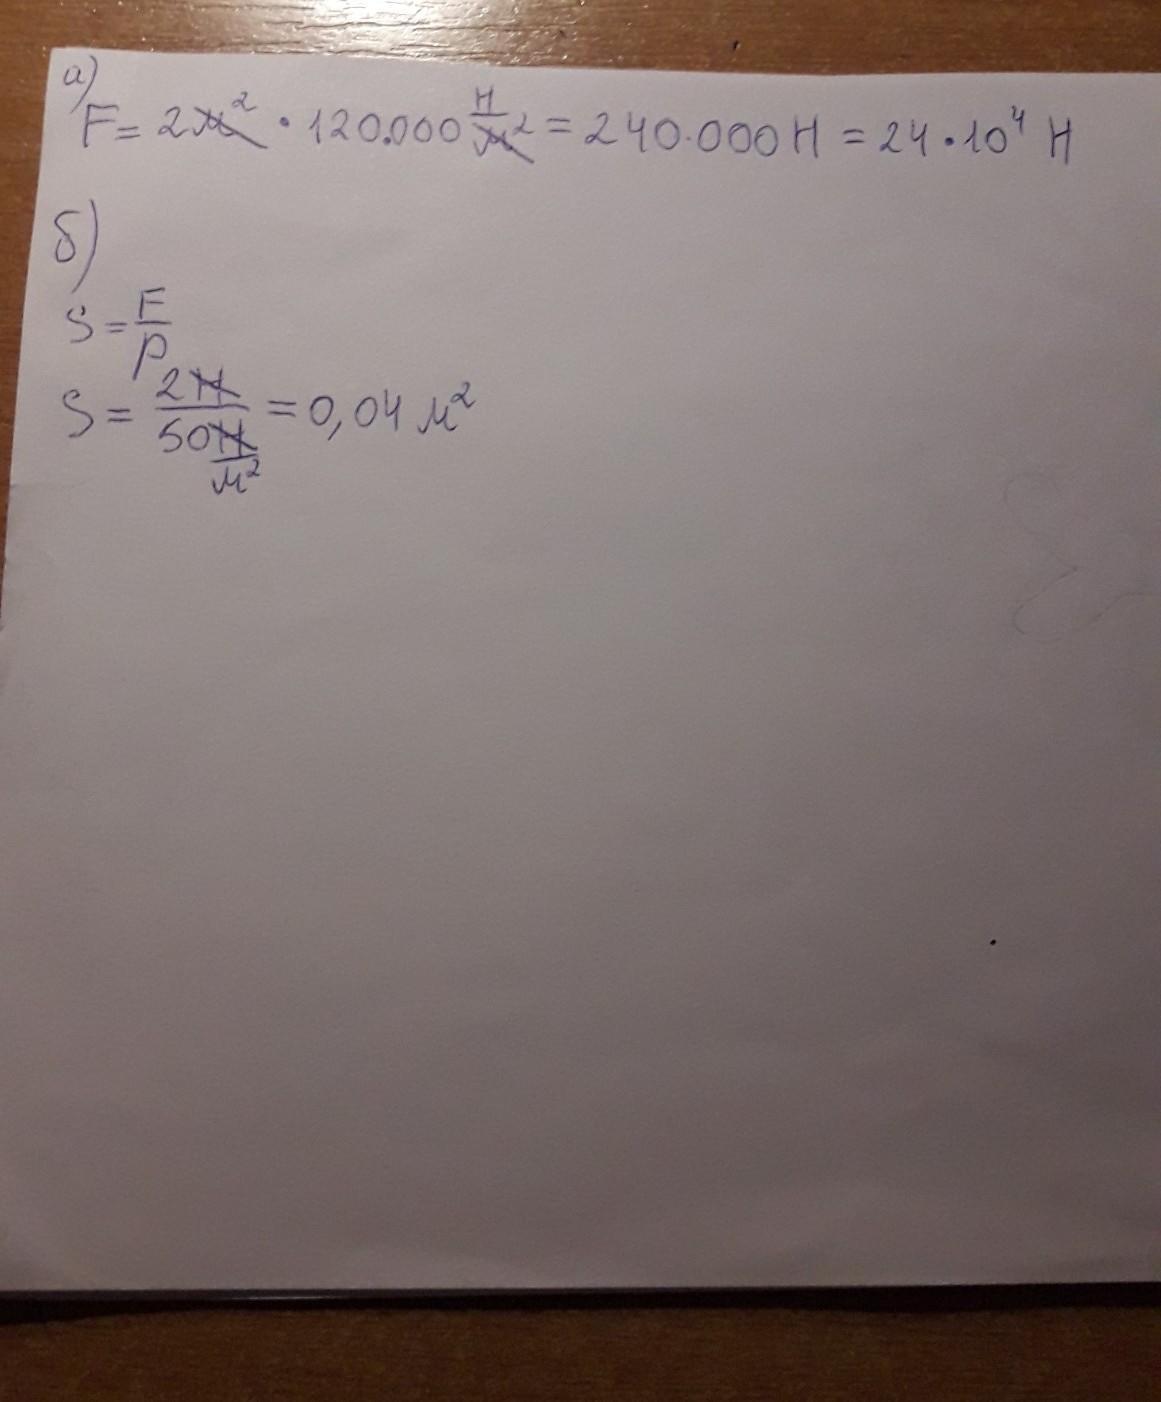 а)
F = 2м² · 120.000 Н/м² = 240.000 Н = 24 · 10⁴ Н
б)
S = F/p
S = 2Н/50Н/м² = 0,04 м²